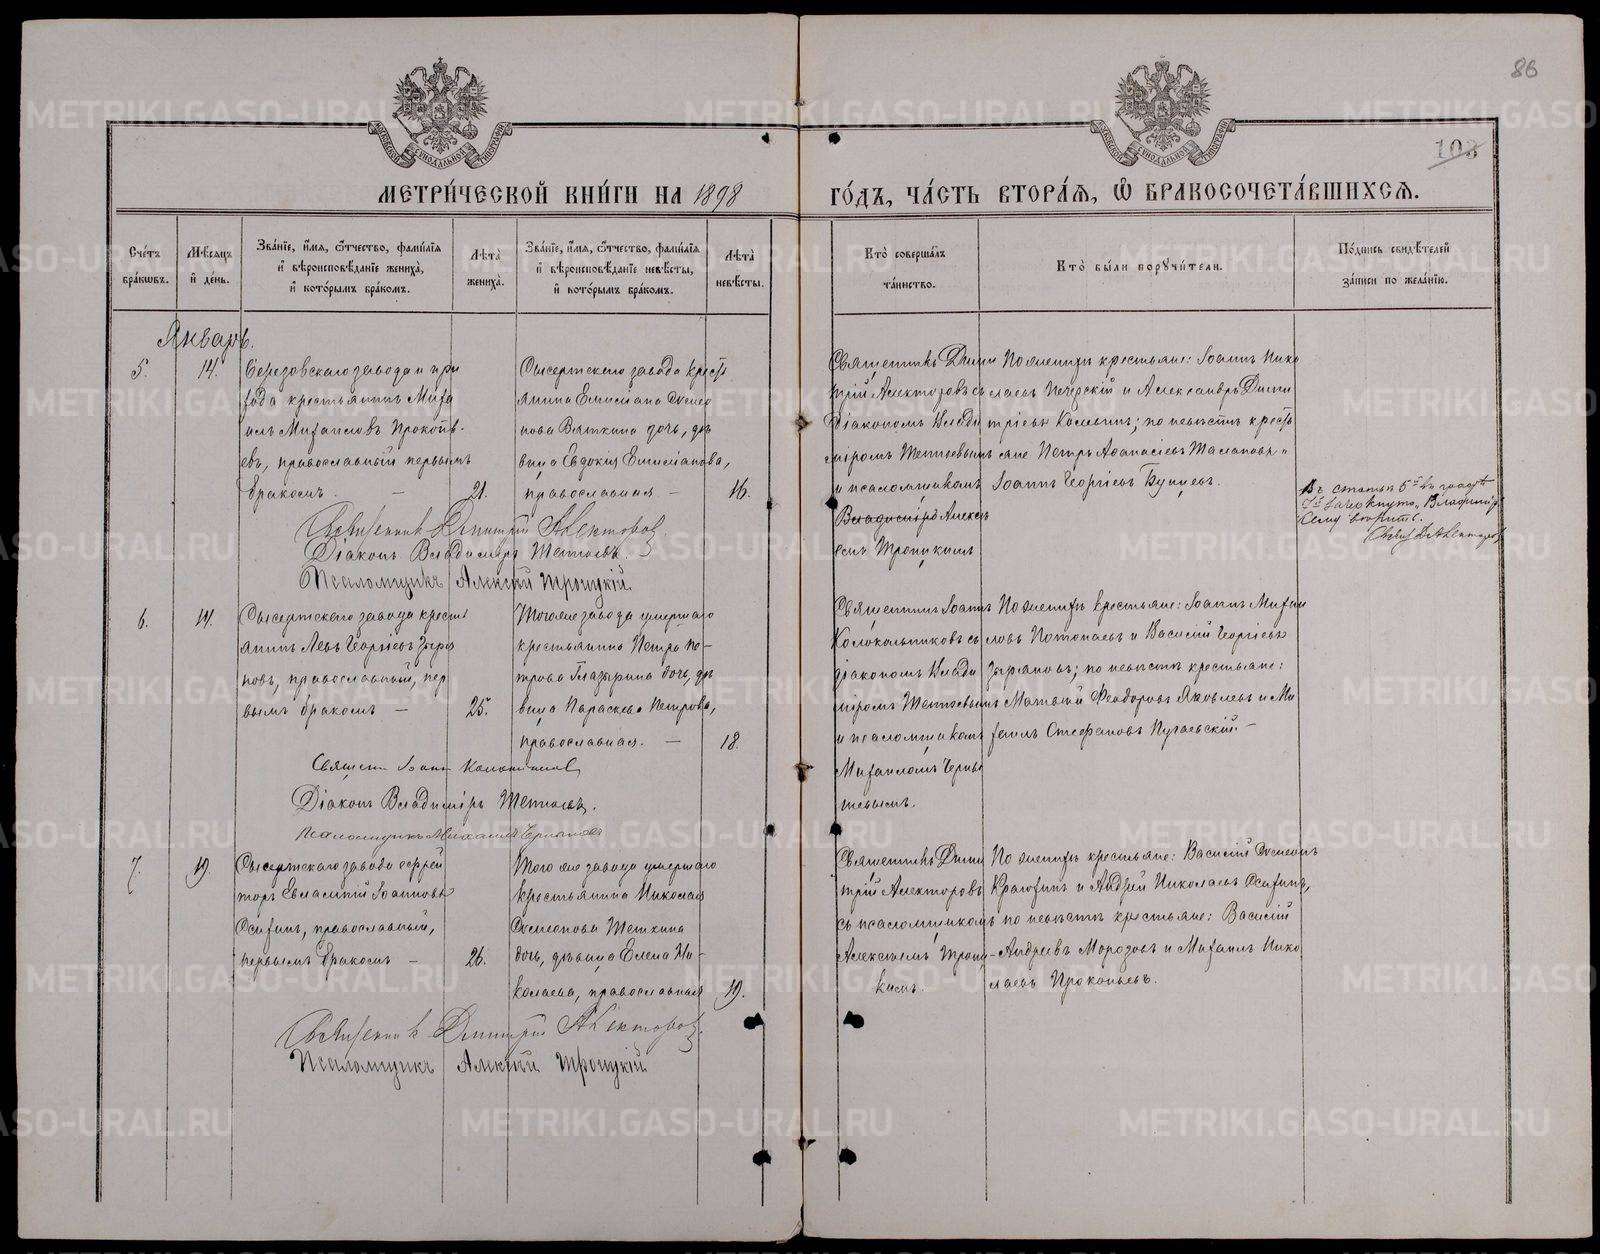 86
103
МОСКОВСКОЙ СѴНОДАЛЬНОЙ ТИПОГРАФІИ
МОСКОВСКОЙ СѴНОДАЛЬНОЙ ТИПОГРАФІИ
МЕТРИ́ЧЕСКОЙ КНИ́ГИ НА 1898
ГО́ДЪ, ЧА́СТЬ ВТОРА́Ѧ, Ѽ БРАКОСОЧЕТА́ВШИХСѦ.
Сче́тъ бра́кѡвъ.
Мѣ́сѧцъ и҆ де́нь.
Зва́нїе, и҆́мѧ, ѻ҆́тчество, фами́лїѧ и҆ вѣроисповѣ́данїе жениха̀, и҆ кото́рымъ бра́комъ.
Лѣ́та̀ жениха̀.
Зва́нїе, и҆́мѧ, ѻ҆́тчество, фами́лїѧ и҆ вѣроисповѣ́данїе невѣ́сты, и҆ кото́рымъ бра́комъ.
Лѣ́та̀ невѣ́сты.
Кто̀ соверша́лъ та́инство.
Кто̀ бы́ли порꙋчи́тели.
По́дпись свидѣ́телей за́писи по жела́нїю.
Январь.
5.
14.
Березовскаго завода и при
хода крестьянинъ Миха
илъ Михаиловъ Прокопь-
евъ, православный первымъ
бракомъ. —
21.
Сысертскаго завода крест
янина Емилiана Симео
нова Вяткина дочь, дѣ
вица Евдокiя Емилiанова,
православная —
16.
Священникъ Дими
трiй Алекторовъ съ
дiакономъ Влади
мiромъ Тетюевымъ
и псаломщикомъ
Владимiръ Алексѣ
емъ Троицкимъ
По женихѣ крестьяне: Iоаннъ Нико
лаевъ Печерскiй и Александръ Дими
трiевъ Колминъ; по невѣстѣ крестъ
яне Петръ Аѳанасiевъ Талановъ и
Iоаннъ Георгiевъ Бунцевъ.
Въ статьи 5й въ графѣ
7й зачеркнуто „Владимiръ
Сему вѣрить.
Свящ. Д. Алекторовъ
Священникъ Дмитрiй Алекторовъ
Дiаконъ Владимiръ Тетюевъ.
Псаломщикъ Алексѣй Троицкiй
6.
14.
Сысертскаго завода крестъ
янинъ Левъ Георгiевъ Зыря
новъ, православный, пер
вымъ бракомъ —
25.
Тогоже завода умершаго
крестьянина Петра Пе-
трова Глазырина дочь, дѣ
вица Параскева Петрова,
православная. —
18.
Священникъ Iоаннъ
Колокольниковъ съ
дiакономъ Влади
мiромъ Тетюевымъ
и псаломщикомъ
Михаиломъ Черны
шевымъ.
По женихѣ крестьяне: Iоаннъ Михаи
ловъ Потопаевъ и Василiй Георгiевъ
Зыряновъ; по невѣстѣ крестьяне:
Матвѣй Ѳеодоровъ Яковлевъ и Ми
хаилъ Стефановъ Пугаевскiй. —
Священ. Iоаннъ Колокольниковъ
Дiаконъ Владимiръ Тетюевъ.
Псаломщикъ Михаилъ Чернышевъ
7.
19.
Сысертскаго завода ефрей
торъ Евлампiй Iоанновъ
Осипинъ, православный,
первымъ бракомъ —
26.
Того же завода умершаго
крестьянина Николая
Симеонова Теткина
дочь, дѣвица Елена Ни-
колаева, православная
19.
Священникъ Дими
трiй Алекторовъ
съ псаломщикомъ
Алексѣемъ Трои-
кимъ.
По женихѣ крестьяне: Василiй Симеонъ
и Андрей Николаевъ Осипинъ,
по невѣстѣ крестьяне: Василiй
Андреевъ Морозовъ и Михаилъ Нико
лаевъ Прокопьевъ.
Священникъ Дмитрiй Алекторовъ.
Псаломщикъ Алексѣй Троицкiй
METRIKI.GASO-URAL.RU